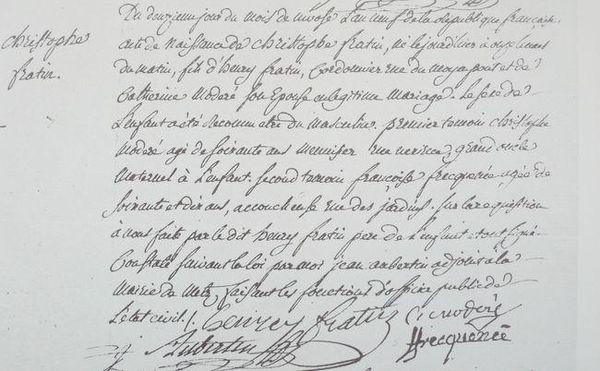 Christophe
fratin.
Du deuzieme jour du mois de nivose L'an neuf de la République françoise
acte de naissance de Christophe fratin, né le jour d'hier à onze heures
du matin, fils d'henry fratin, Cordonnier rue du moyen pont et de
Catherine Moderé son Epouse en legitime Mariage. Le sexe de
L'enfant a été reconnu etre du Masculin. premier temoin Christophe
Moderé agé de soixante ans Menuisier grand oncle
Maternel à L'enfant. second temoin françoise frecquenée agée de
soixante et dix ans, accoucheuse rue des jardins. Sur la requisition
à nous faite par le dit henry fratin pere de L'enfant et ont signé
Constaté suivant la loi par moi jean aubertin adjoint à la
Mairie de Metz, faisant les fonctions d'officier public de
L'état civil. henrey fratin C. moderé
Aubertin ffrecquenée